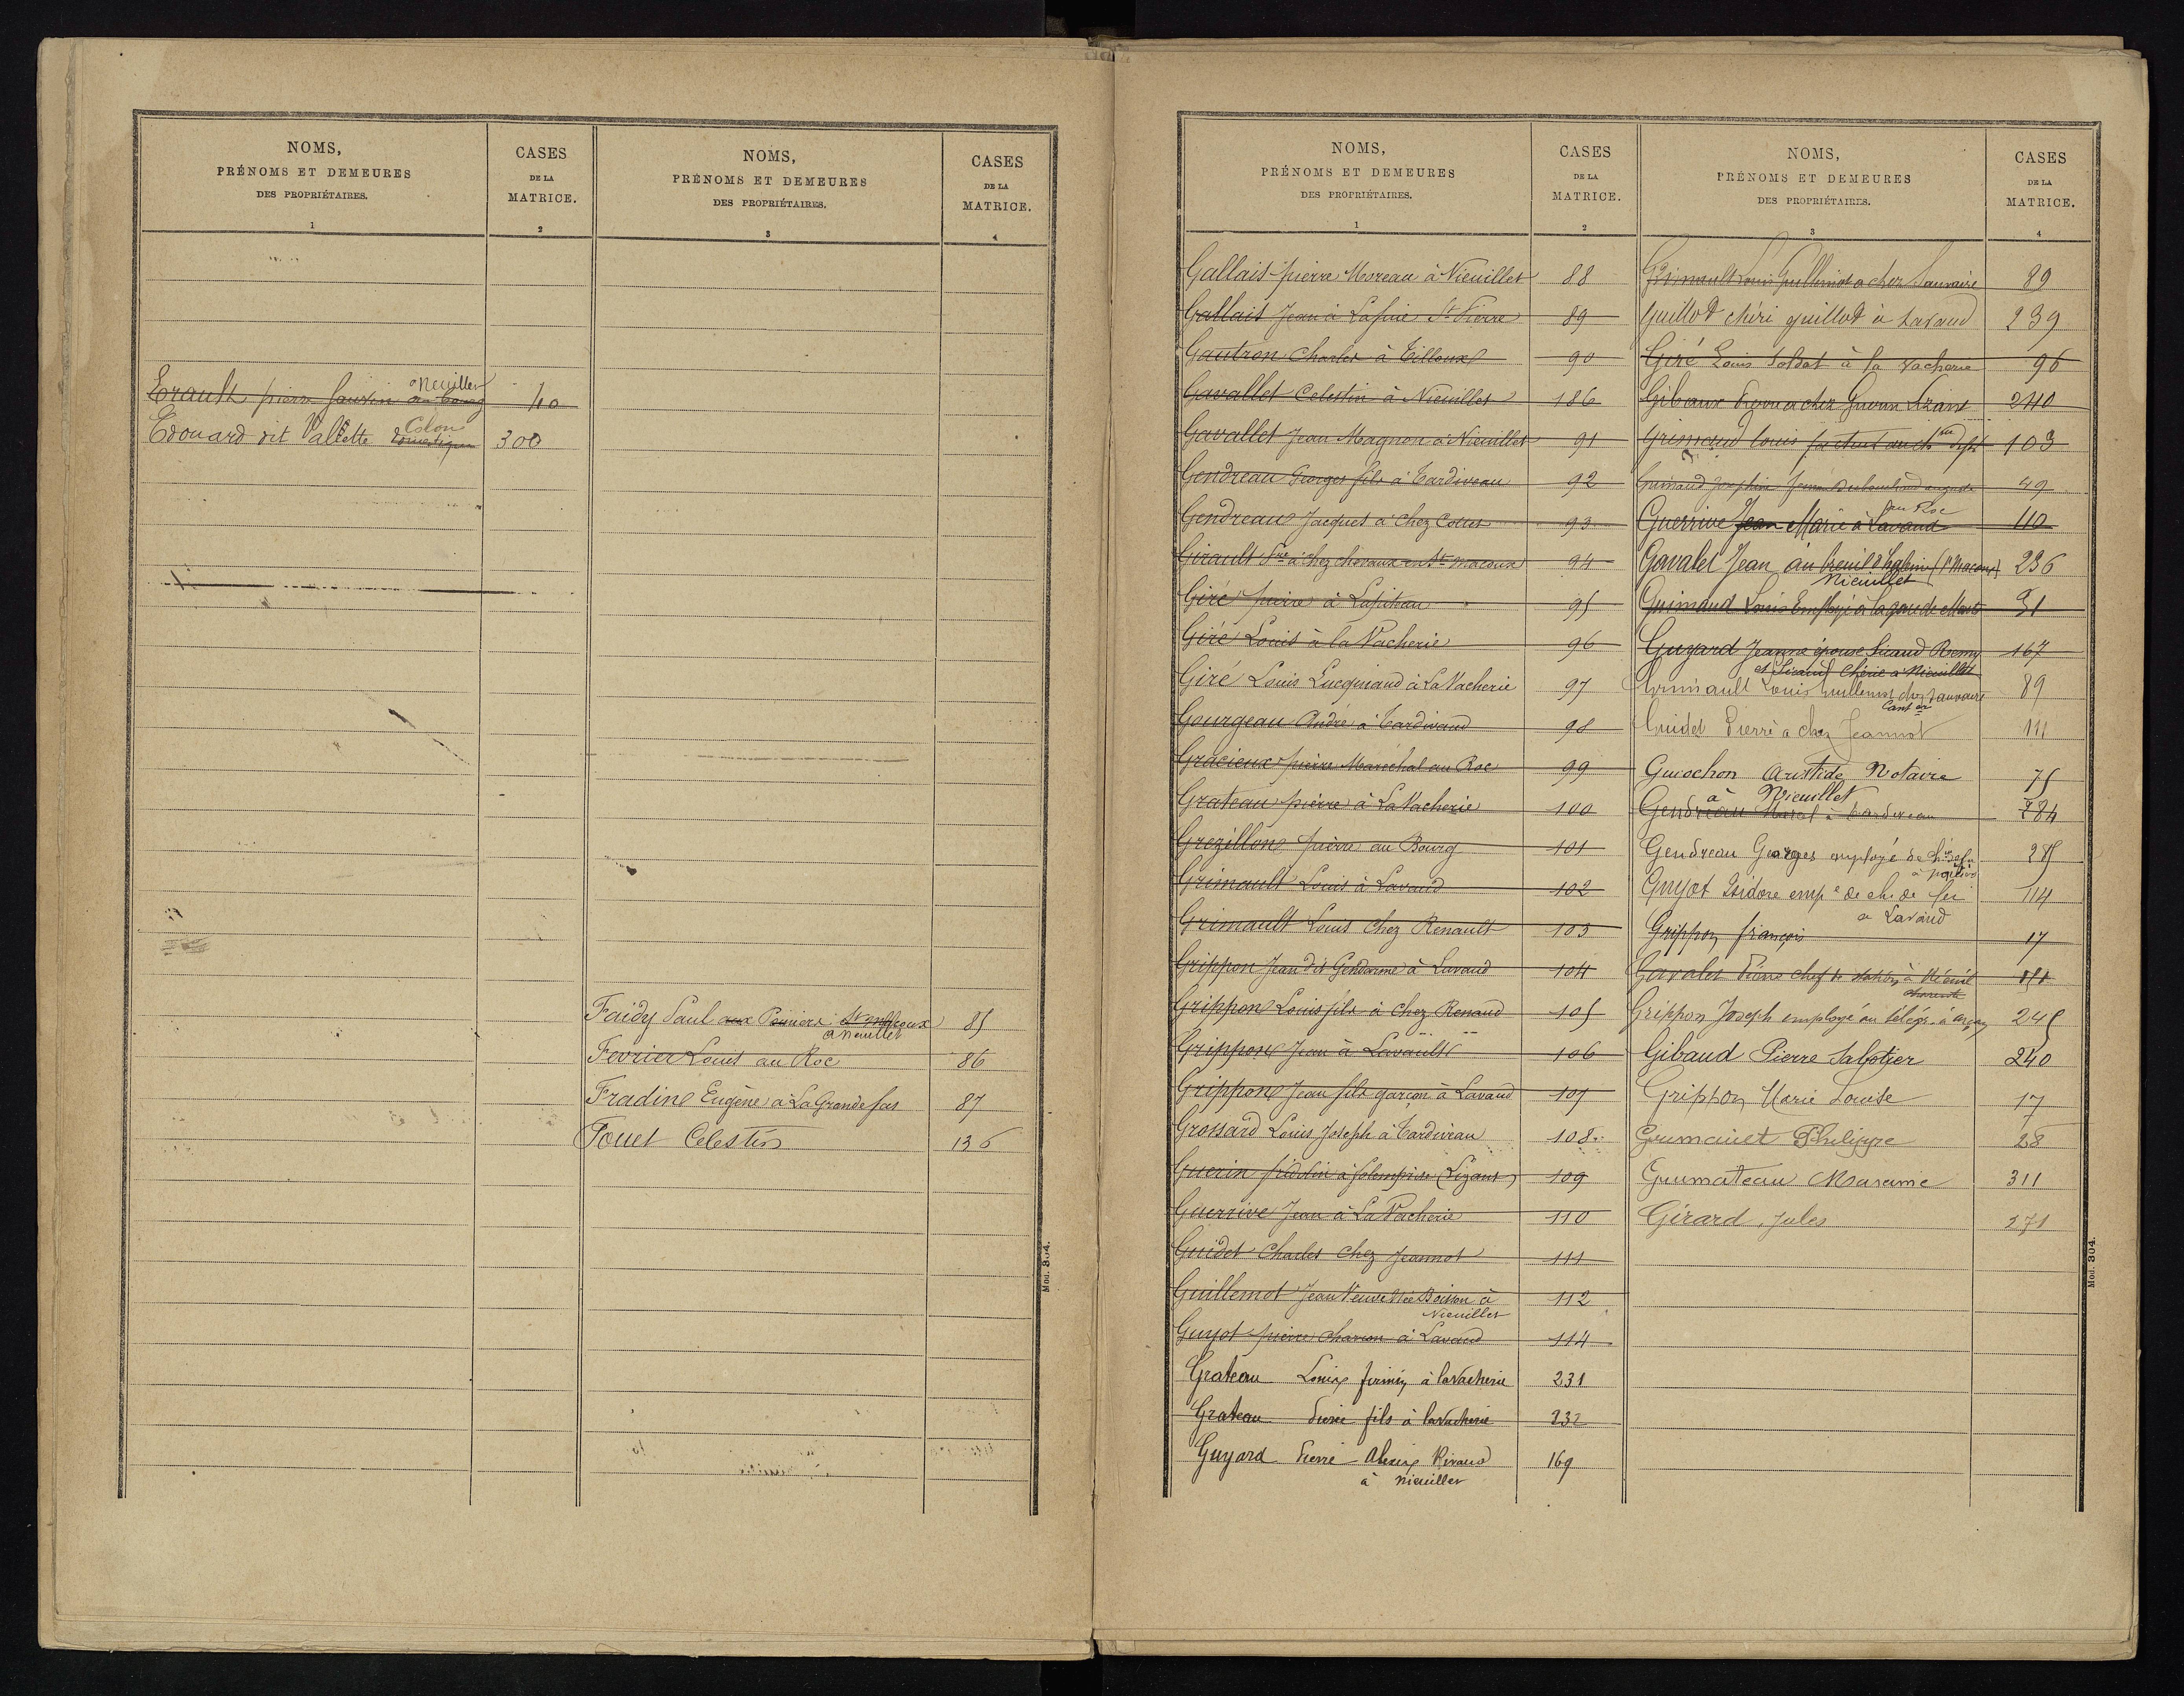 NOMS,
PRÉNOMS ET DEMEURES
DES PROPRIÉTAIRES.
1
CASES
DE LA
MATRICE.
2
NOMS,
PRÉNOMS ET DEMEURES
DES PROPRIÉTAIRES.
3
CASES
DE LA
MATRICE.
4
a Nieuillet
Erault pierre au bourg 40
Colon
Edouard dit Vallette Domestique 300
Faidy Paul aux St macoux 85
a Nieuillet
Fevrier Louis au Roc 86
Fradine Eugène à La Grande fas 87
Fouet Celestin 136
Mod. 304.
NOMS,
PRÉNOMS ET DEMEURES
DES PROPRIÉTAIRES.
1
CASES
DE LA
MATRICE.
2
Gallais pierre Moreau à Nieuillet 88
Gallais Jean à St Pierre 89
Gautron Charles à Tilloux 90
Gavallet Celestin à Nieuillet 186
Gavallet Jean Magnon à Nieuillet 91
Gendreau Georges fils à Tardiveau 92
Gendreau Jacques à Chez Colus 93
Girault à chez chevaux en St macoux 94
Giré pierre à Lapiteau 95
Giré Louis à la Vacherie 96
Giré Louis Lucquiaud à La Vacherie 97
Gourgeau André à Tardiveau 98
Gracieux pierre Maréchal au Roc 99
Grateau pierre à La Vacherie 100
Grezillon pierre au Bourg 101
Grimault Louis à Lavaud 102
Grimault Louis Chez Renault 103
Grippon Jean dit Gendarme à Lavaud 104
Grippon Louis fils à Chez Renaud 105
Grippon Jean à Lavault 106
Grippon Jean fils garçon à Lavaud 107
Grossard Louis Joseph à Tardiveau 108
Guerin à (Lizant) 109
Guerrive Jean à La Vacherie 110
Guidet Charles Chez Jeannot 111
Guillemot Jean Veuve Née Boisson à 112
Nieuillet
Guyot pierre charron à Lavaud 114
Grateau Louis firmin à la Vacherie 231
Grateau Pierre fils à la Vacherie 232
Guyard Pierre Alexis Rivaud 169
à Nieuillet
NOMS,
PRÉNOMS ET DEMEURES
DES PROPRIÉTAIRES.
3
CASES
DE LA
MATRICE.
4
Grimault Louis Guillemot a chez Sauvaire 89
Guillot chéri guillot à Lavaud 239
Giré Louis Soldat à la vacherie 96
Gibaux Pierre a chez Guerin Lizant 240
Grimaud louis facteur 103
Grimaud Josephine 49
au Roc
Guerrive Jean Marie à Lavaud 110
Gavalet Jean au (St Macoux) 236
Nieuillet
Grimaud Louis Employé à la gare de 31
Guyard Jeanne épouse Sicaud Remy 167
et Sicaud Chérie a Nieuillet
Grimault Louis Guillemot chez Sauvaire 89
Cant er
Guidet Pierre a chez Jeannot 111
Guiochon Aristide Notaire 75
à Nieuillet
Gendreau Marcel à Tardiveau 284
Gendreau Georges employé de 285
Guyot Isidore emp é de ch. de fer 114
a Lavaud
Grippon françois 17
Gavalet Pierre chef de station à
Grippon Joseph employé au télégr. à 245
Gibaud Pierre Sabotier 240
Grippon Marie Louise 17
Grimauet Philippe 28
Grumateau Maxime 311
Girard, Jules 271
Mod. 304.